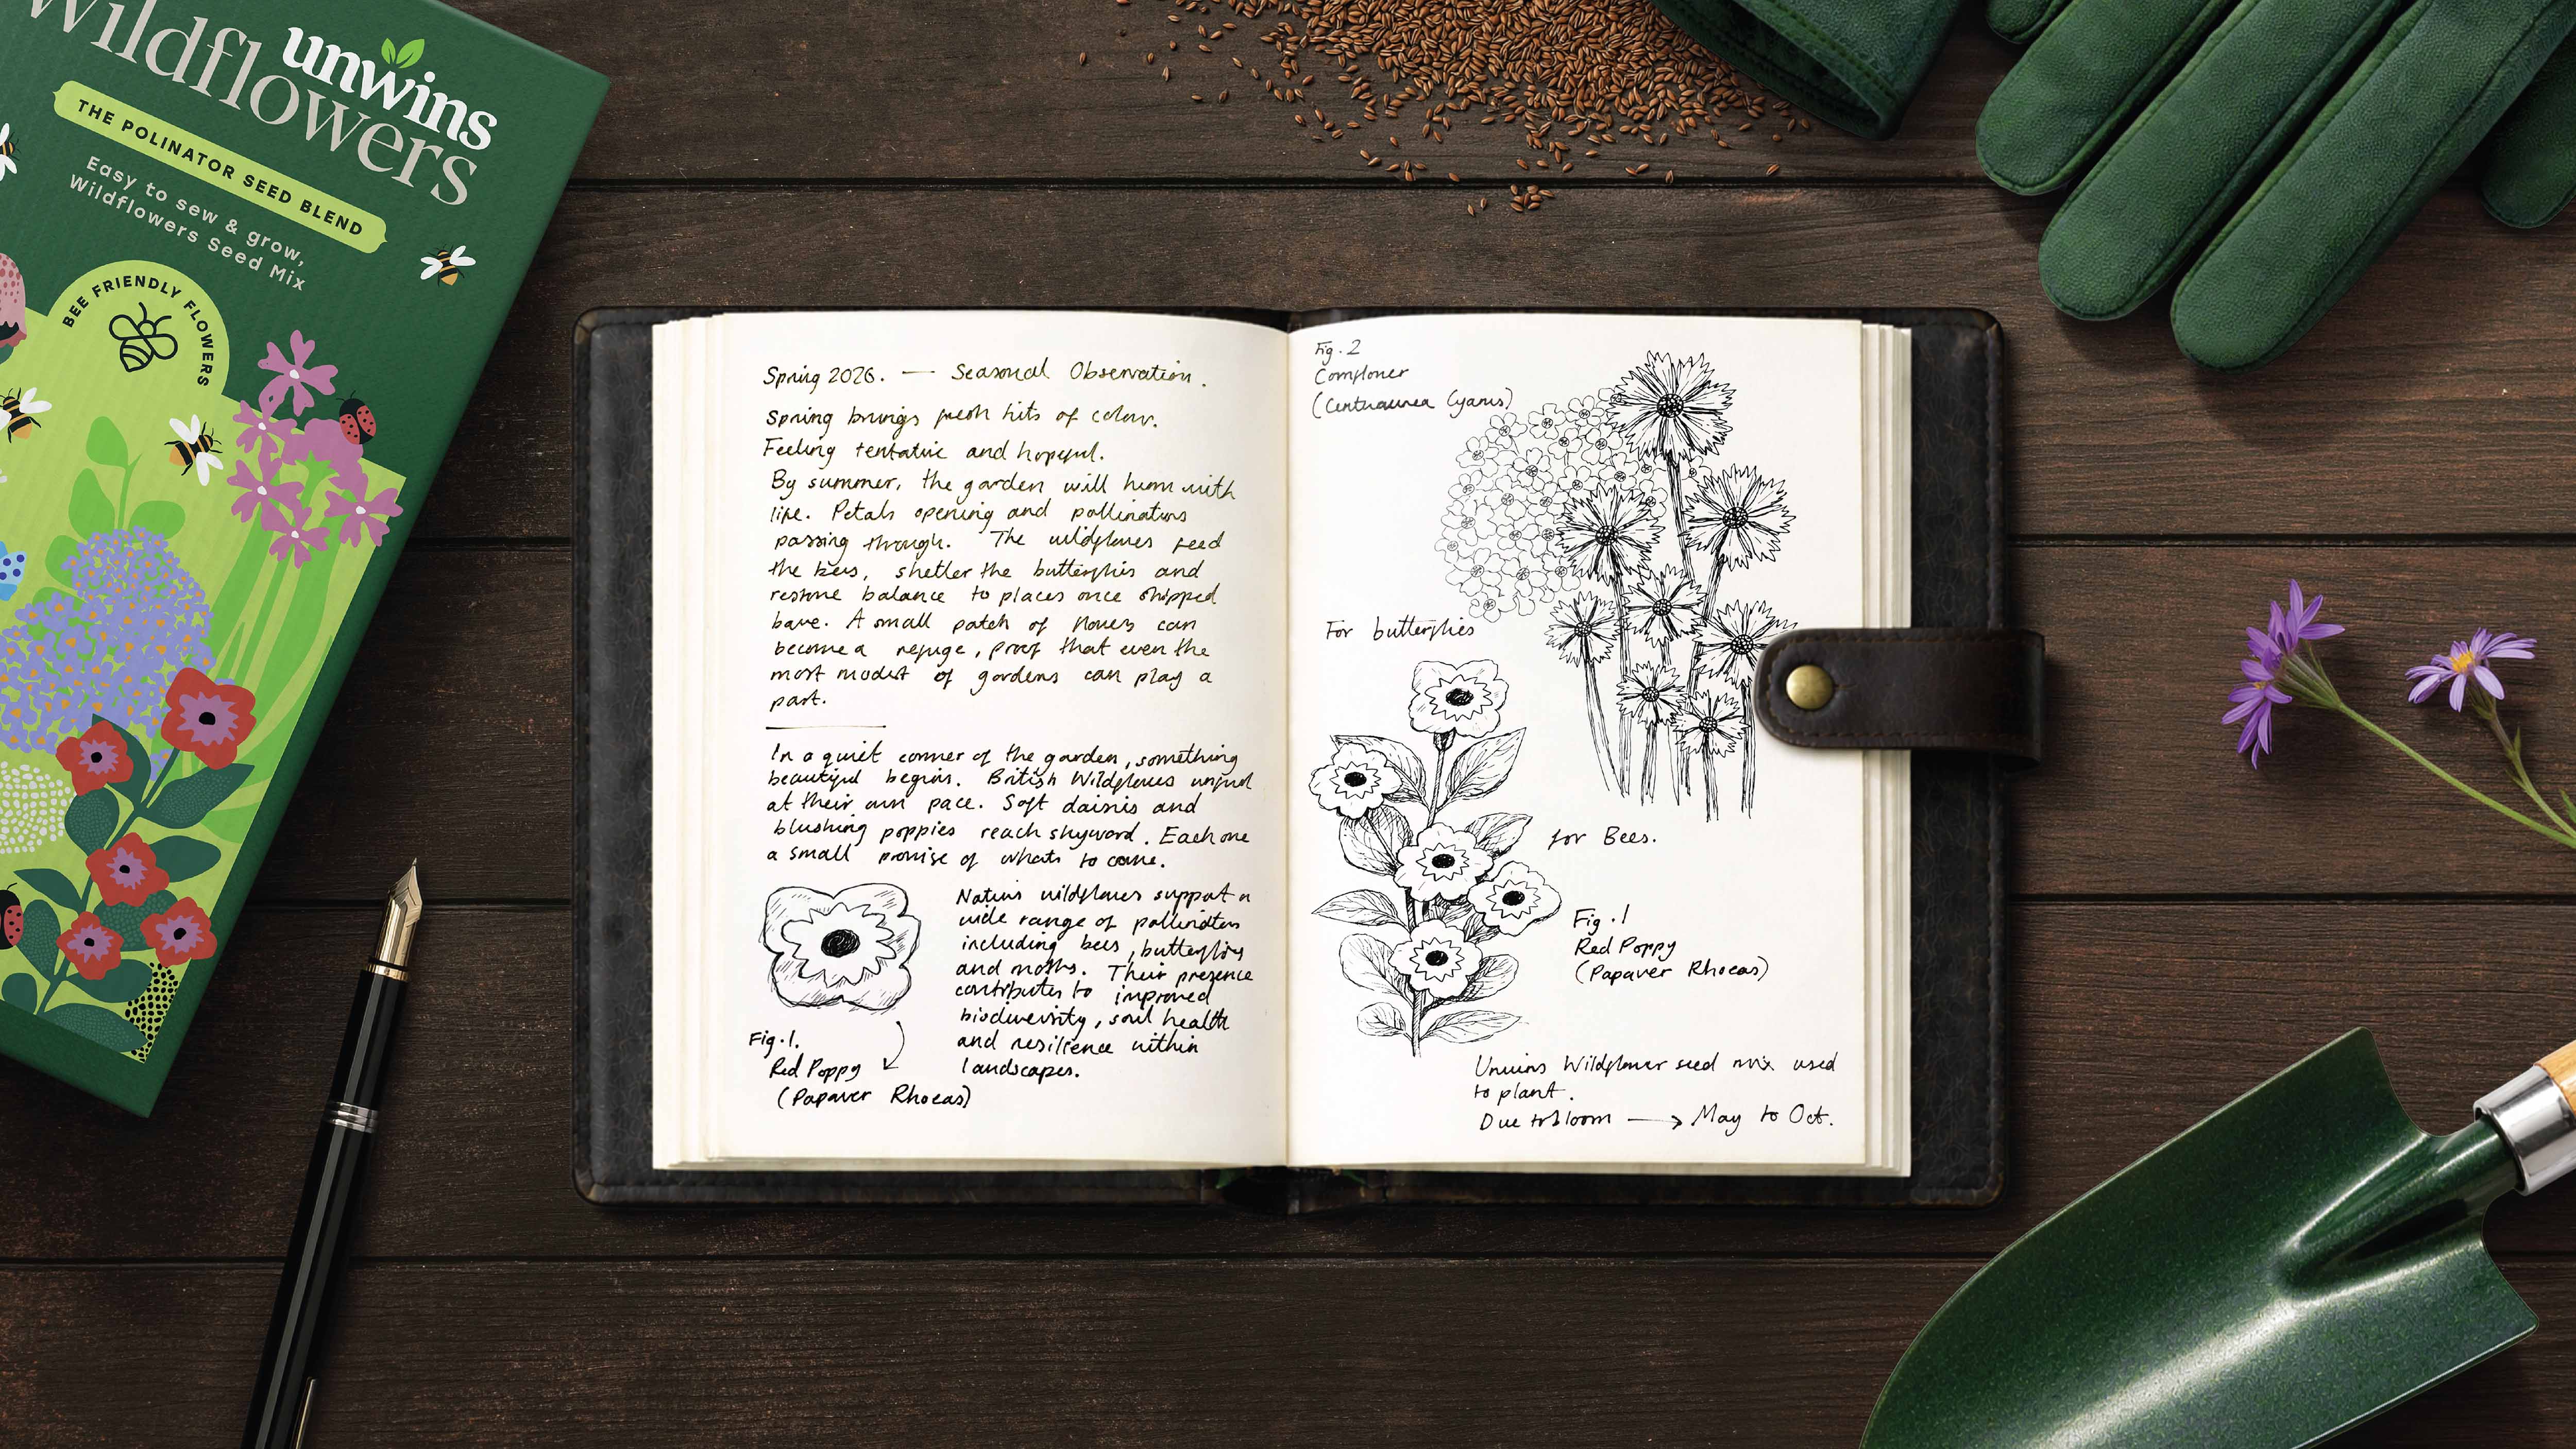 Wildflowers
unwins
THE POLINATOR SEED BLEND
Easy to sew & grow,
Wildflowers Seed Mix
BEE FRIENDLY FLOWERS
Spring 2026. — Seasonal Observation.
Spring brings fresh hits of colour.
Feeling tentative and hopeful.
By summer, the garden will hum with
life. Petals opening and pollinators
passing through. The wildflowers feed
the bees, shelter the butterflies and
restore balance to places once stripped
bare. A small patch of flowers can
become a refuge, proof that even the
most modest of gardens can play a
part.
In a quiet corner of the garden, something
beautiful begins. British Wildflowers unfurl
at their own pace. Soft daisies and
blushing poppies reach skyward. Each one
a small promise of whats to come.
Native wildflowers support a
wide range of pollinators
including bees, butterflies
and moths. Their presence
contributes to improved
biodiversity, soil health
and resilience within
landscapes.
Fig.1.
Red Poppy
(Papaver Rhoeas)
Fig.2
Cornflower
(Centhaurea Cyanus)
For butterflies
for Bees.
Fig.1
Red Poppy
(Papaver Rhoeas)
Unwins Wildflower seed mix used
to plant.
Due to bloom → May to Oct.